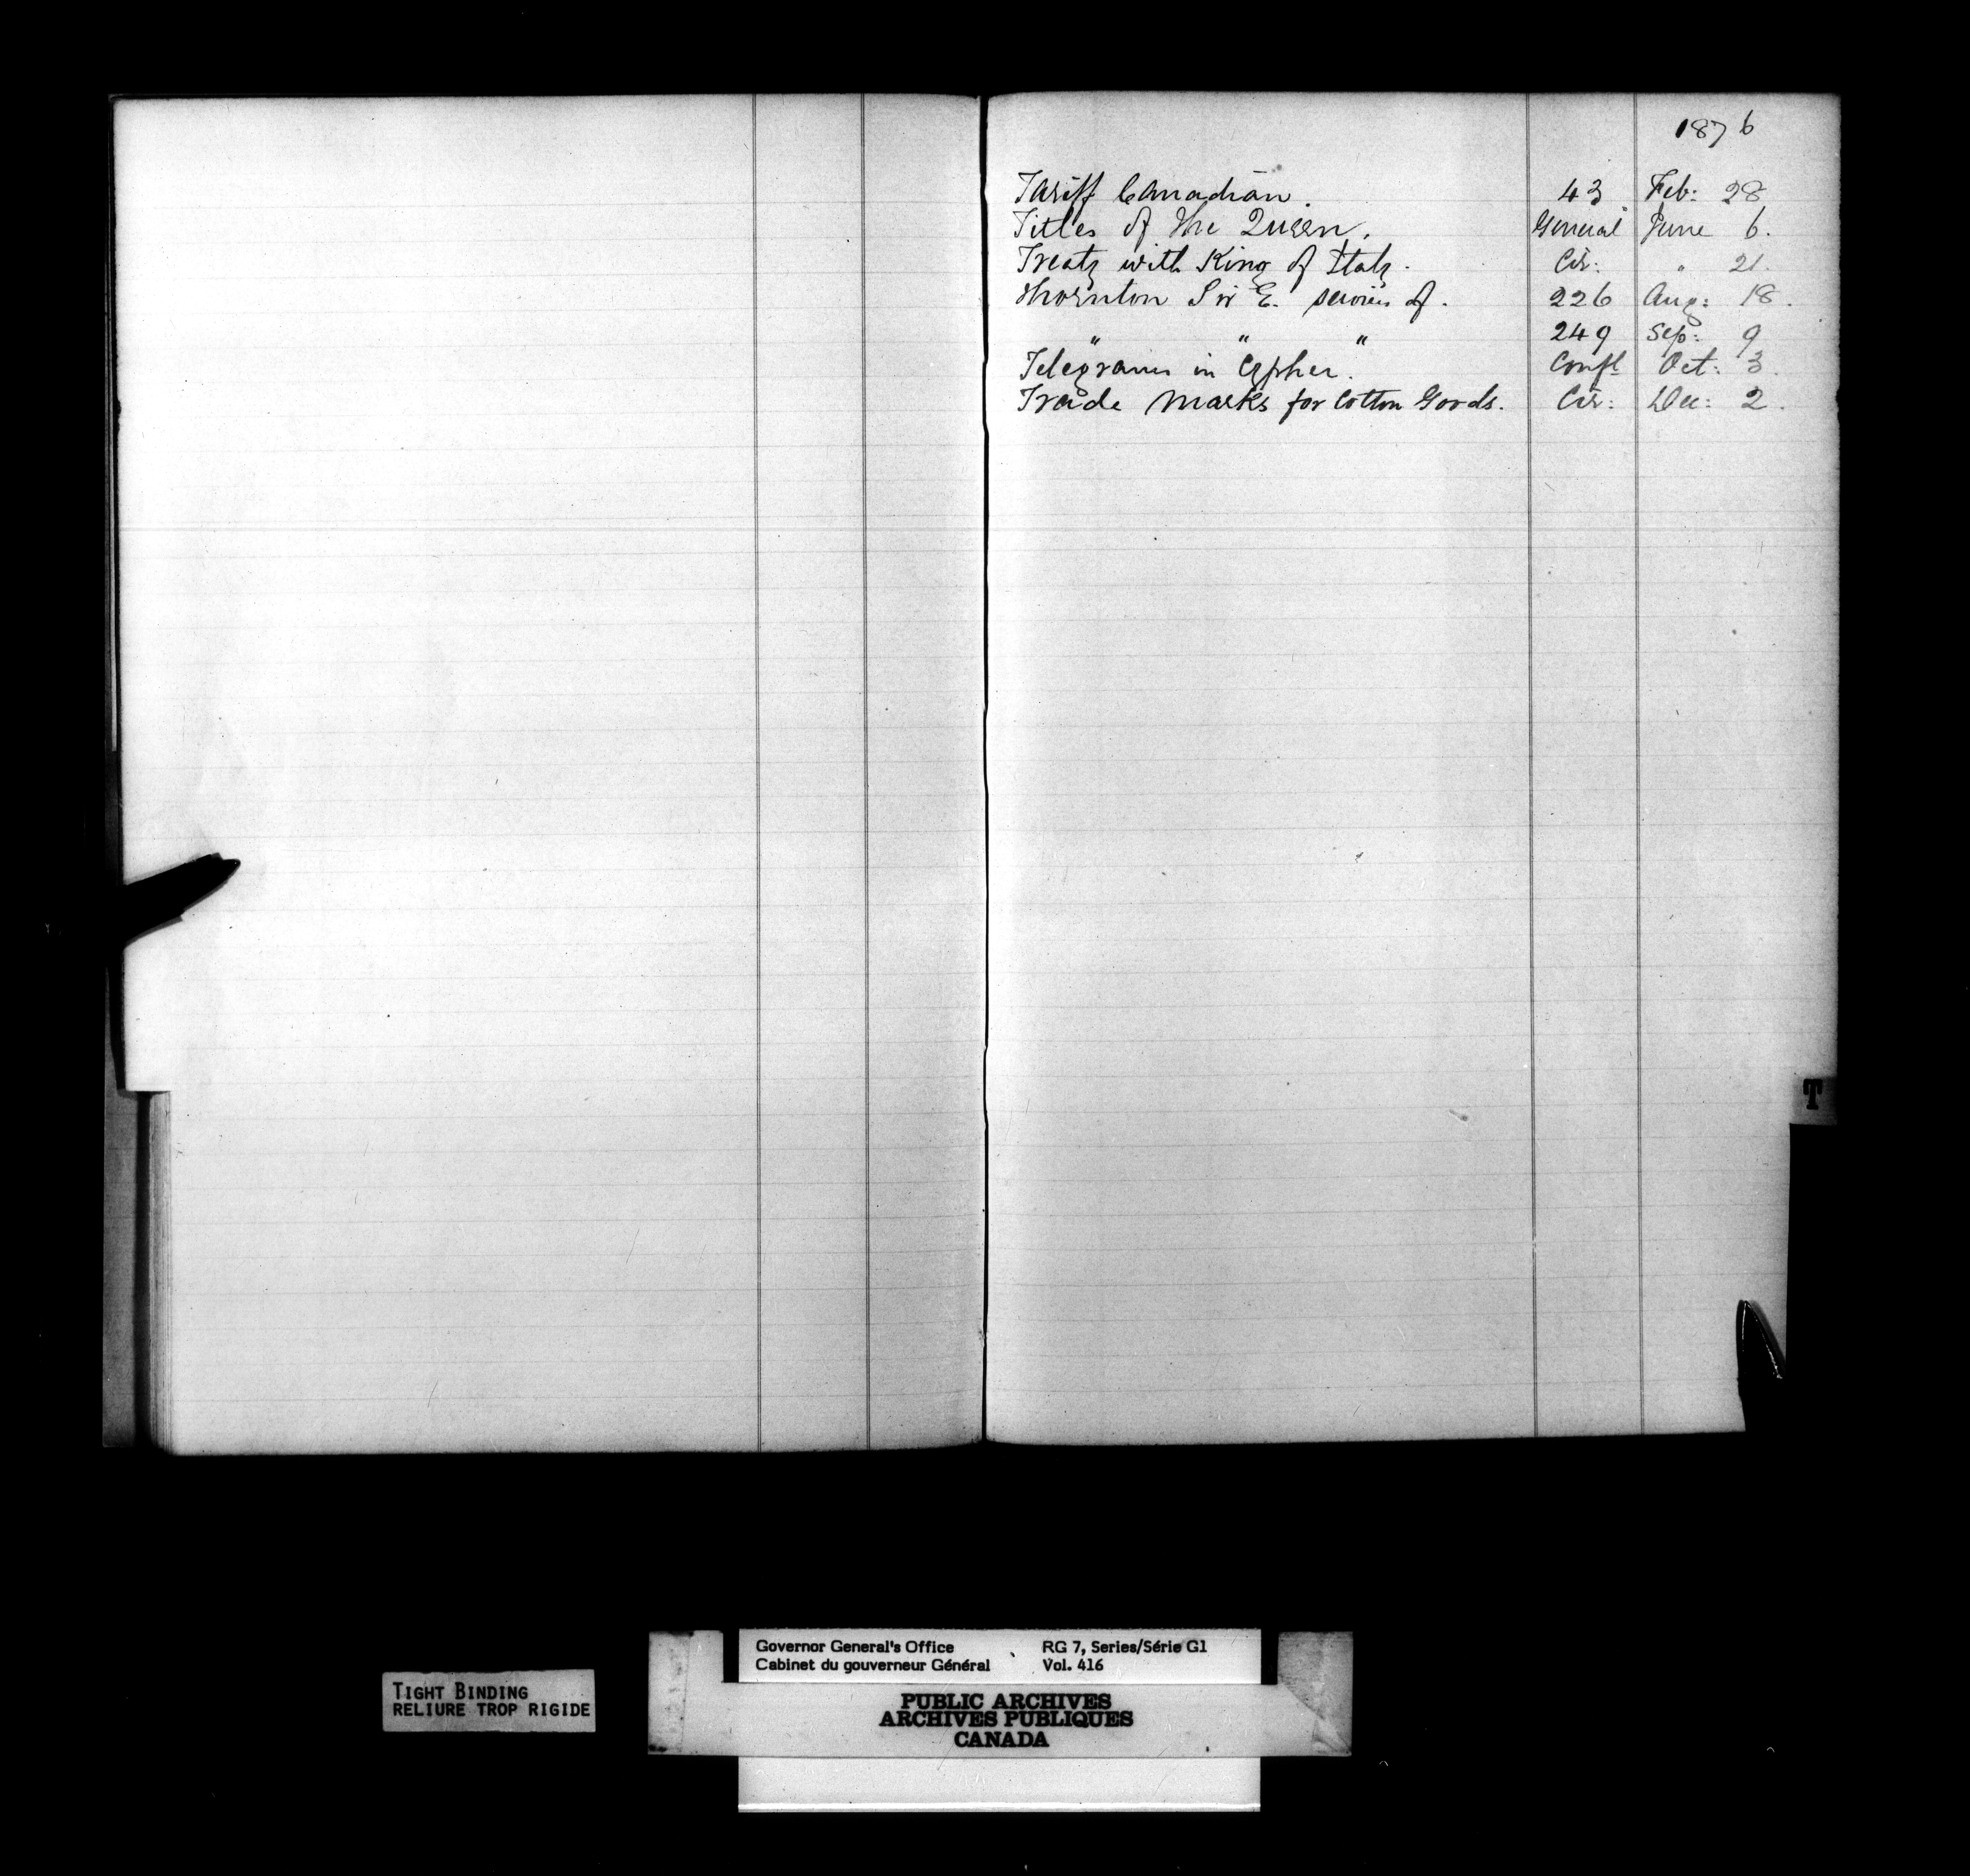 1876
Tariff Canadian. 43. Feb: 28
Titles of the Queen. General June 6.
Treaty with King of Italy. Cir: " 21.
Thornton Sir E. services of. 226 Aug: 18.
" " " 249 Sep: 9
Telegrams in Cypher. Confl Oct: 3.
Trade Marks for Cotton Goods. Cir: Dec: 2.
T
Governor General's Office RG 7, Series/Série G1
Cabinet du gouverneur Général Vol. 416
TIGHT BINDING
RELIURE TROP RIGIDE
PUBLIC ARCHIVES
ARCHIVES PUBLIQUES
CANADA